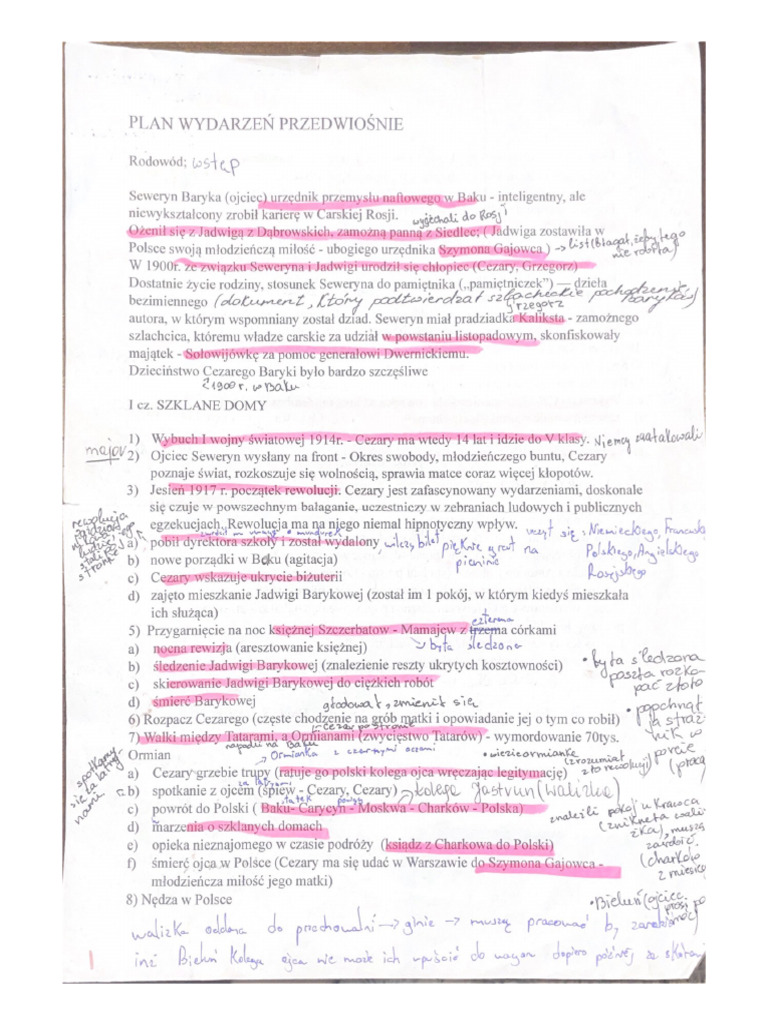 PLAN WYDARZEŃ PRZEDWIOŚNIE
Rodowód; wstęp
Seweryn Baryka (ojciec) urzędnik przemysłu naftowego w Baku - inteligentny, ale
niewykształcony zrobił karierę w Carskiej Rosji. wyjechali do Rosji
Ożenił się z Jadwigą z Dąbrowskich, zamożną panną z Siedlec; ( Jadwiga zostawiła w
Polsce swoją młodzieńczą miłość - ubogiego urzędnika Szymona Gajowca ) → list (błagał, żeby tego
nie robiła)
W 1900r. ze związku Seweryna i Jadwigi urodził się chłopiec (Cezary, Grzegorz)
Dostatnie życie rodziny, stosunek Seweryna do pamiętnika („pamiętniczek") — dzieła
bezimiennego (dokument, który podtwierdzał szlacheckie pochodzenie
Baryków)
Grzegorz
autora, w którym wspomniany został dziad. Seweryn miał pradziadka Kaliksta - zamożnego
szlachcica, któremu władze carskie za udział w powstaniu listopadowym, skonfiskowały
majątek - Sołowijówkę za pomoc generałowi Dwernickiemu.
Dzieciństwo Cezarego Baryki było bardzo szczęśliwe
1900 r. w Baku
I cz. SZKLANE DOMY
1) Wybuch I wojny światowej 1914r. - Cezary ma wtedy 14 lat i idzie do V klasy. Niemcy zaatakowali
major
2) Ojciec Seweryn wysłany na front - Okres swobody, młodzieńczego buntu, Cezary
poznaje świat, rozkoszuje się wolnością, sprawia matce coraz więcej kłopotów.
3) Jesień 1917 r. początek rewolucji. Cezary jest zafascynowany wydarzeniami, doskonale
się czuje w powszechnym bałaganie, uczestniczy w zebraniach ludowych i publicznych
egzekucjach. Rewolucja ma na niego niemal hipnotyczny wpływ.
rewolucja
a) pobił dyrektora szkoły i został wydalony wilczy bilet pięknie grał na
pianinie
uczył się: Niemieckiego, Francuski
Polskiego, Angielskiego
Rosyjskiego
b) nowe porządki w Baku (agitacja)
c) Cezary wskazuje ukrycie biżuterii
d) zajęto mieszkanie Jadwigi Barykowej (został im 1 pokój, w którym kiedyś mieszkała
ich służąca)
czterema
5) Przygarnięcie na noc księżnej Szczerbatow - Mamajew z trzema córkami
a) nocna rewizja (aresztowanie księżnej) → była śledzona
b) śledzenie Jadwigi Barykowej (znalezienie reszty ukrytych kosztowności)
c) skierowanie Jadwigi Barykowej do ciężkich robót
d) śmierć Barykowej głodował, zmienił się
• była śledzona
poszła rozko
pać złoto
• popchnął
ją straż
nik w
porcie
(praca
6) Rozpacz Cezarego (częste chodzenie na grób matki i opowiadanie jej o tym co robił)
Cezar po stronie
7) Walki między Tatarami, a Ormianami (zwycięstwo Tatarów) - wymordowanie 70tys.
napadli na Baku
Ormian
Ormianka z czarnymi oczami
• wiezie ormiankę
(zrozumiał
zło rewolucji)
a) Cezary grzebie trupy (ratuje go polski kolega ojca wręczając legitymację)
spotkany
się
b) spotkanie z ojcem (śpiew - Cezary, Cezary) → kolega Jastrun (walizka)
c) powrót do Polski ( Baku- Carycyn - Moskwa - Charków - Polska)
statek pociąg
d) marzenia o szklanych domach
e) opieka nieznajomego w czasie podróży (ksiądz z Charkowa do Polski)
f) śmierć ojca w Polsce (Cezary ma się udać w Warszawie do Szymona Gajowca -
młodzieńcza miłość jego matki)
znaleźli pokój u Krawca
(zniknęła wali
zka), muszą
zarobić
(charków
2 miesiące
8) Nędza w Polsce
• Bieluń (ojciec
walizka oddana do przechowalni → ginie → muszą pracować by zarabiać
inż Bieluń kolega ojca nie może ich wpuścić do wagonu dopiero później za
1